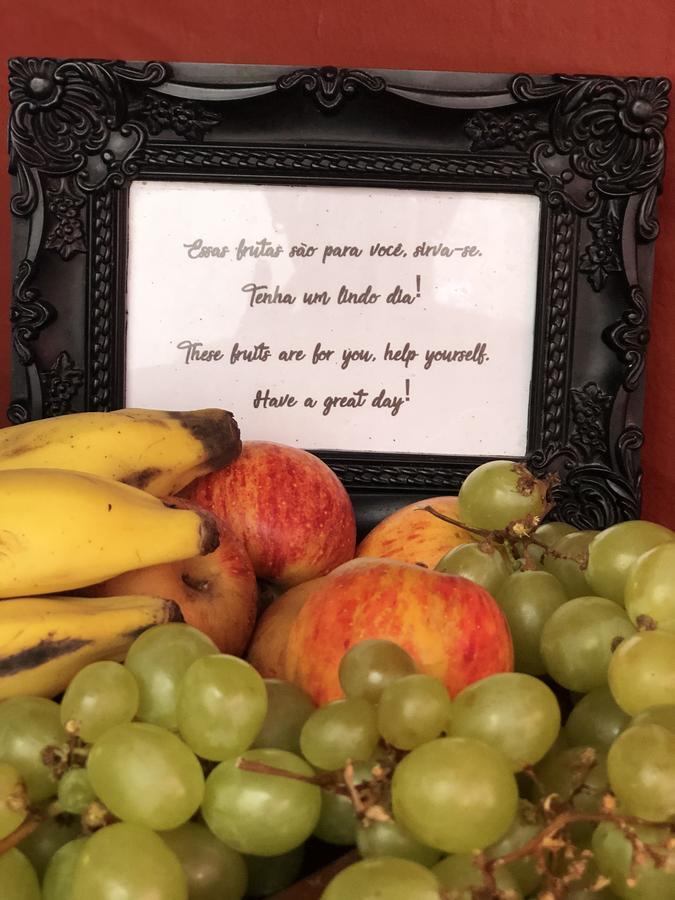 Essas frutas são para você, sirva-se.
Tenha um lindo dia!
These fruits are for you, help yourself.
Have a great day!